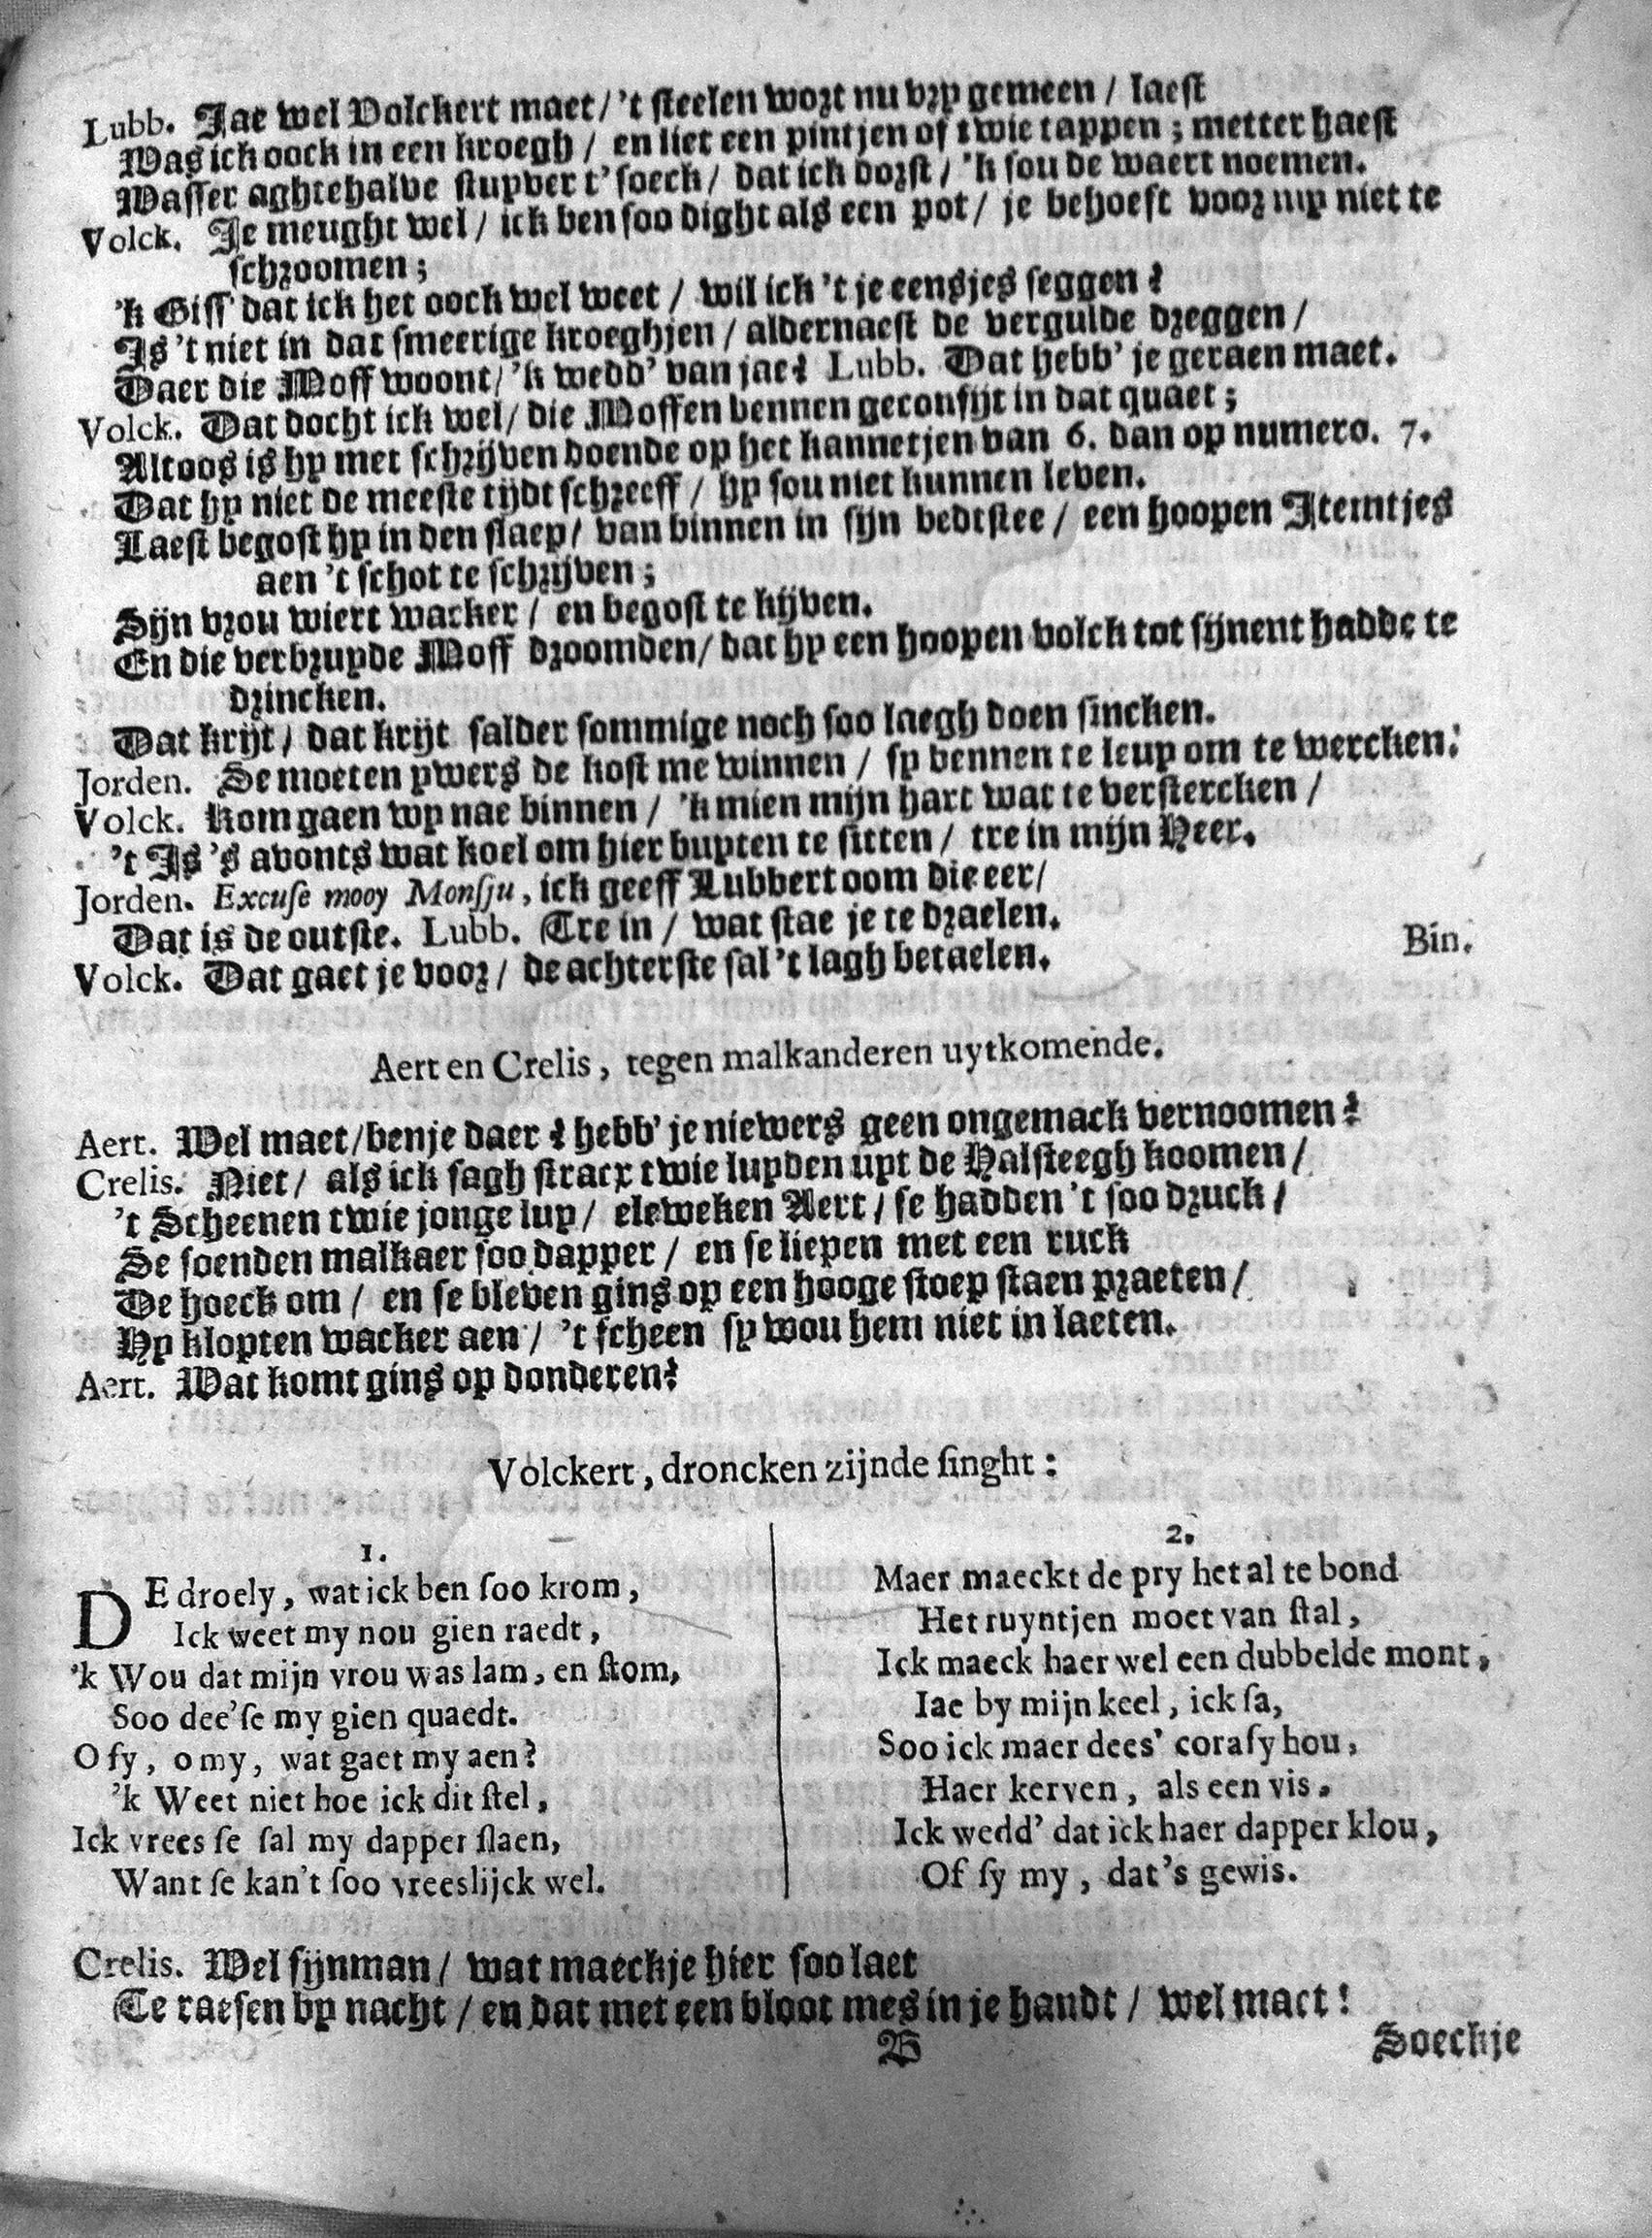 Lubb. Jae wel Volckert maet / 't steelen wort nu vry gemeen / laest
Was ick oock in een kroegh / en liet een pintjen of twie tappen ; metter haest
Wasser aghtehalve stuyver t'soeck / dat ick dorst / 'k sou de waert noemen.
Volck. Je meught wel / ick ben soo dight als een pot / je behoeft voor my niet te
schroomen ;
'k Giss' dat ick het oock wel weet / wil ick 't je eensjes seggen ?
Is 't niet in dat smeerige kroeghjen / aldernaest de vergulde dreggen /
Daer die Moff woont / 'k wedd' van jae ? Lubb. Dat hebb' je geraen maet.
Volck. Dat docht ick wel / die Moffen bennen geconfijt in dat quaet ;
Altoos is hy met schrijven doende op het kannetjen van 6. dan op numero. 7.
Dat hy niet de meeste tijdt schreeff / hy sou niet kunnen leven.
Laest begost hy in den slaep / van binnen in sijn bedtstee / een hoopen Itemtjes
aen 't schot te schrijven ;
Sijn vrou wiert wacker / en begost te kijven.
En die verbruyde Moff droomden / dat hy een hoopen volck tot sijnent hadde te
drincken.
Dat krijt / dat krijt salder sommige noch soo laegh doen sincken.
Jorden. Se moeten ywers de kost me winnen / sy bennen te leuy om te wercken.
Volck. Kom gaen wy nae binnen / 'k mien mijn hart wat te verstercken /
't Is 's avonts wat koel om hier buyten te sitten / tre in mijn Heer.
Jorden. Excuse mooy Monsju, ick geeff Lubbert oom die eer /
Dat is de outste. Lubb. Tre in / wat stae je te draelen.
Volck. Dat gaet je voor / de achterste sal 't lagh betaelen. Bin.
Aert en Crelis, tegen malkanderen uytkomende.
Aert. Wel maet / benje daer ? hebb' je niewers geen ongemack vernoomen ?
Crelis. Niet / als ick sagh stracx twie luyden uyt de Halsteegh koomen /
't Scheenen twie jonge luy / eleweken Aert / se hadden 't soo druck /
Se soenden malkaer soo dapper / en se liepen met een ruck
De hoeck om / en se bleven gins op een hooge stoep staen praeten /
Hy klopten wacker aen / 't scheen sy wou hem niet in laeten.
Aert. Wat komt gins op donderen ?
Volckert, droncken zijnde singht :
1.
DE droely, wat ick ben soo krom,
Ick weet my nou gien raedt,
'k Wou dat mijn vrou was lam, en stom,
Soo dee'se my gien quaedt.
O sy, o my, wat gaet my aen?
'k Weet niet hoe ick dit stel,
Ick vrees se sal my dapper slaen,
Want se kan't soo vreeslijck wel.
2.
Maer maeckt de pry het al te bond
Het ruyntjen moet van stal,
Ick maeck haer wel een dubbelde mont,
Iae by mijn keel, ick sa,
Soo ick maer dees' corasy hou,
Haer kerven, als een vis.
Ick wedd' dat ick haer dapper klou,
Of sy my, dat's gewis.
Crelis. Wel sijnman / wat maeckje hier soo laet
Te raesen by nacht / en dat met een bloot mes in je handt / wel maet !
B
Soeckje